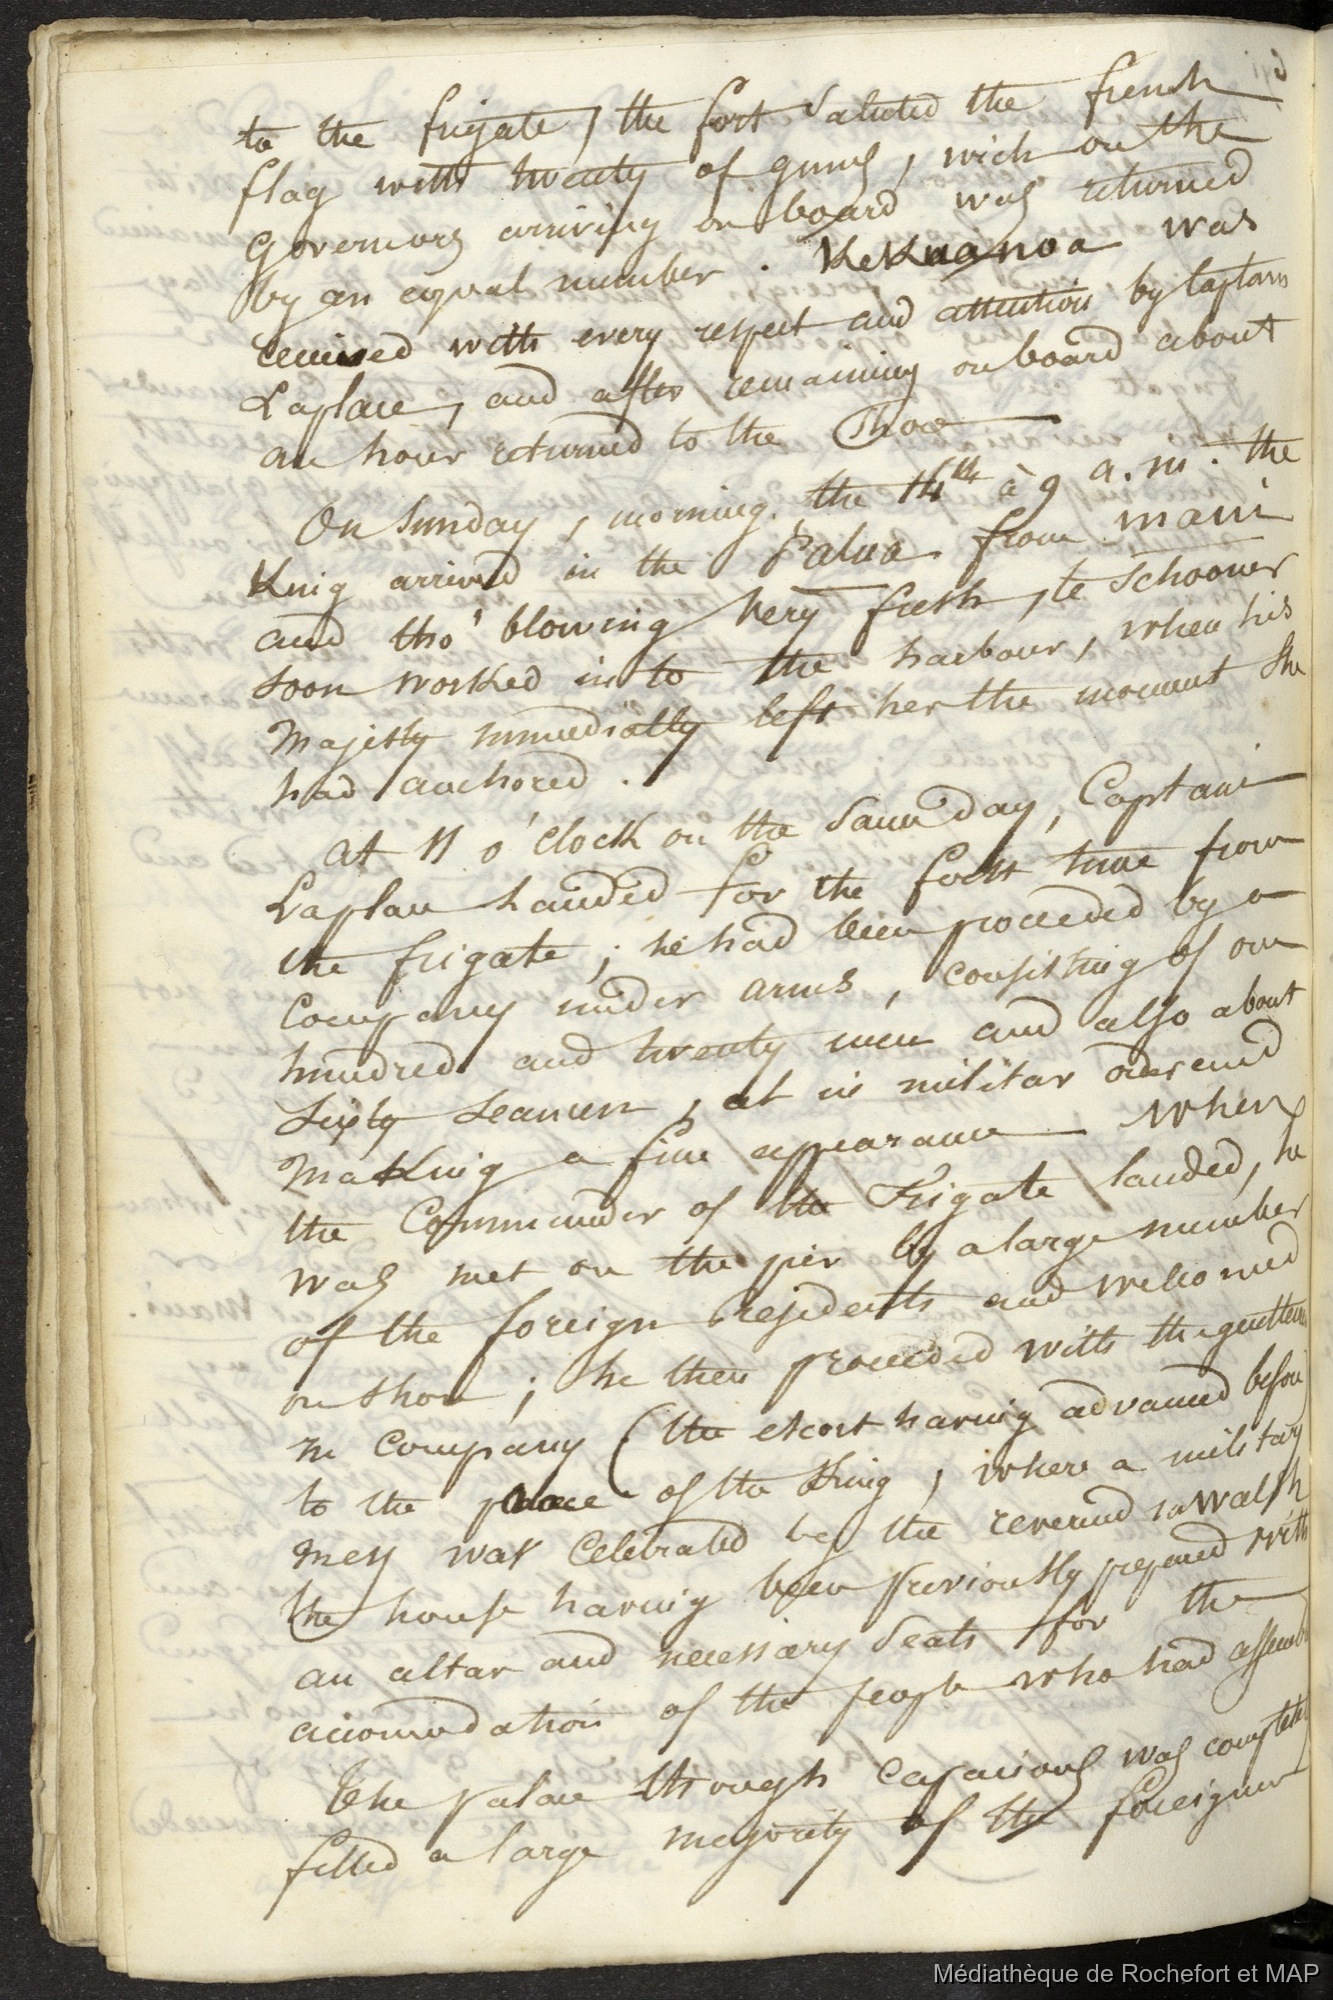 to the frigate, the fort saluted the french
flag with twenty of guns, wich on the
Governors arriving on board was returned
by an equal number. Kekuanoa was
received with every respect and attention by Captain
Laplace, and after remaining on board about
an hour returned to the Shore
On Sunday, morning. the 14th à 9 a.m. the
King arrived in the Palua from maui
and tho' blowing very fresh, te schooner
soon worked in to the harbour, when his
Majesty immediatly left her the moment she
had anchored.
at 11 o'clock on the same day, Captain
Laplace handed for the first time from
the frigate; he had been proceeded by a
Company under arms, consisting of one
hundred and twenty men and also about
Sixty seamen, at in militar order and
making a fine appearance when
the Commander of the Frigate landed, he
was met on the pier by a large number
of the foreign residents and welcomed
on shore; he then proceeded with the gentlem
in Company (the escort having advanced before
to the place of the King, where a military
mess was celebrated by the reverend m Walsh
the house having been previously prepared with
an altar and necessary seats for the
accomodation of the people who had assembl
The palace through capacious was completel
filled a large majority of the foreigner
Médiathèque de Rochefort et MAP